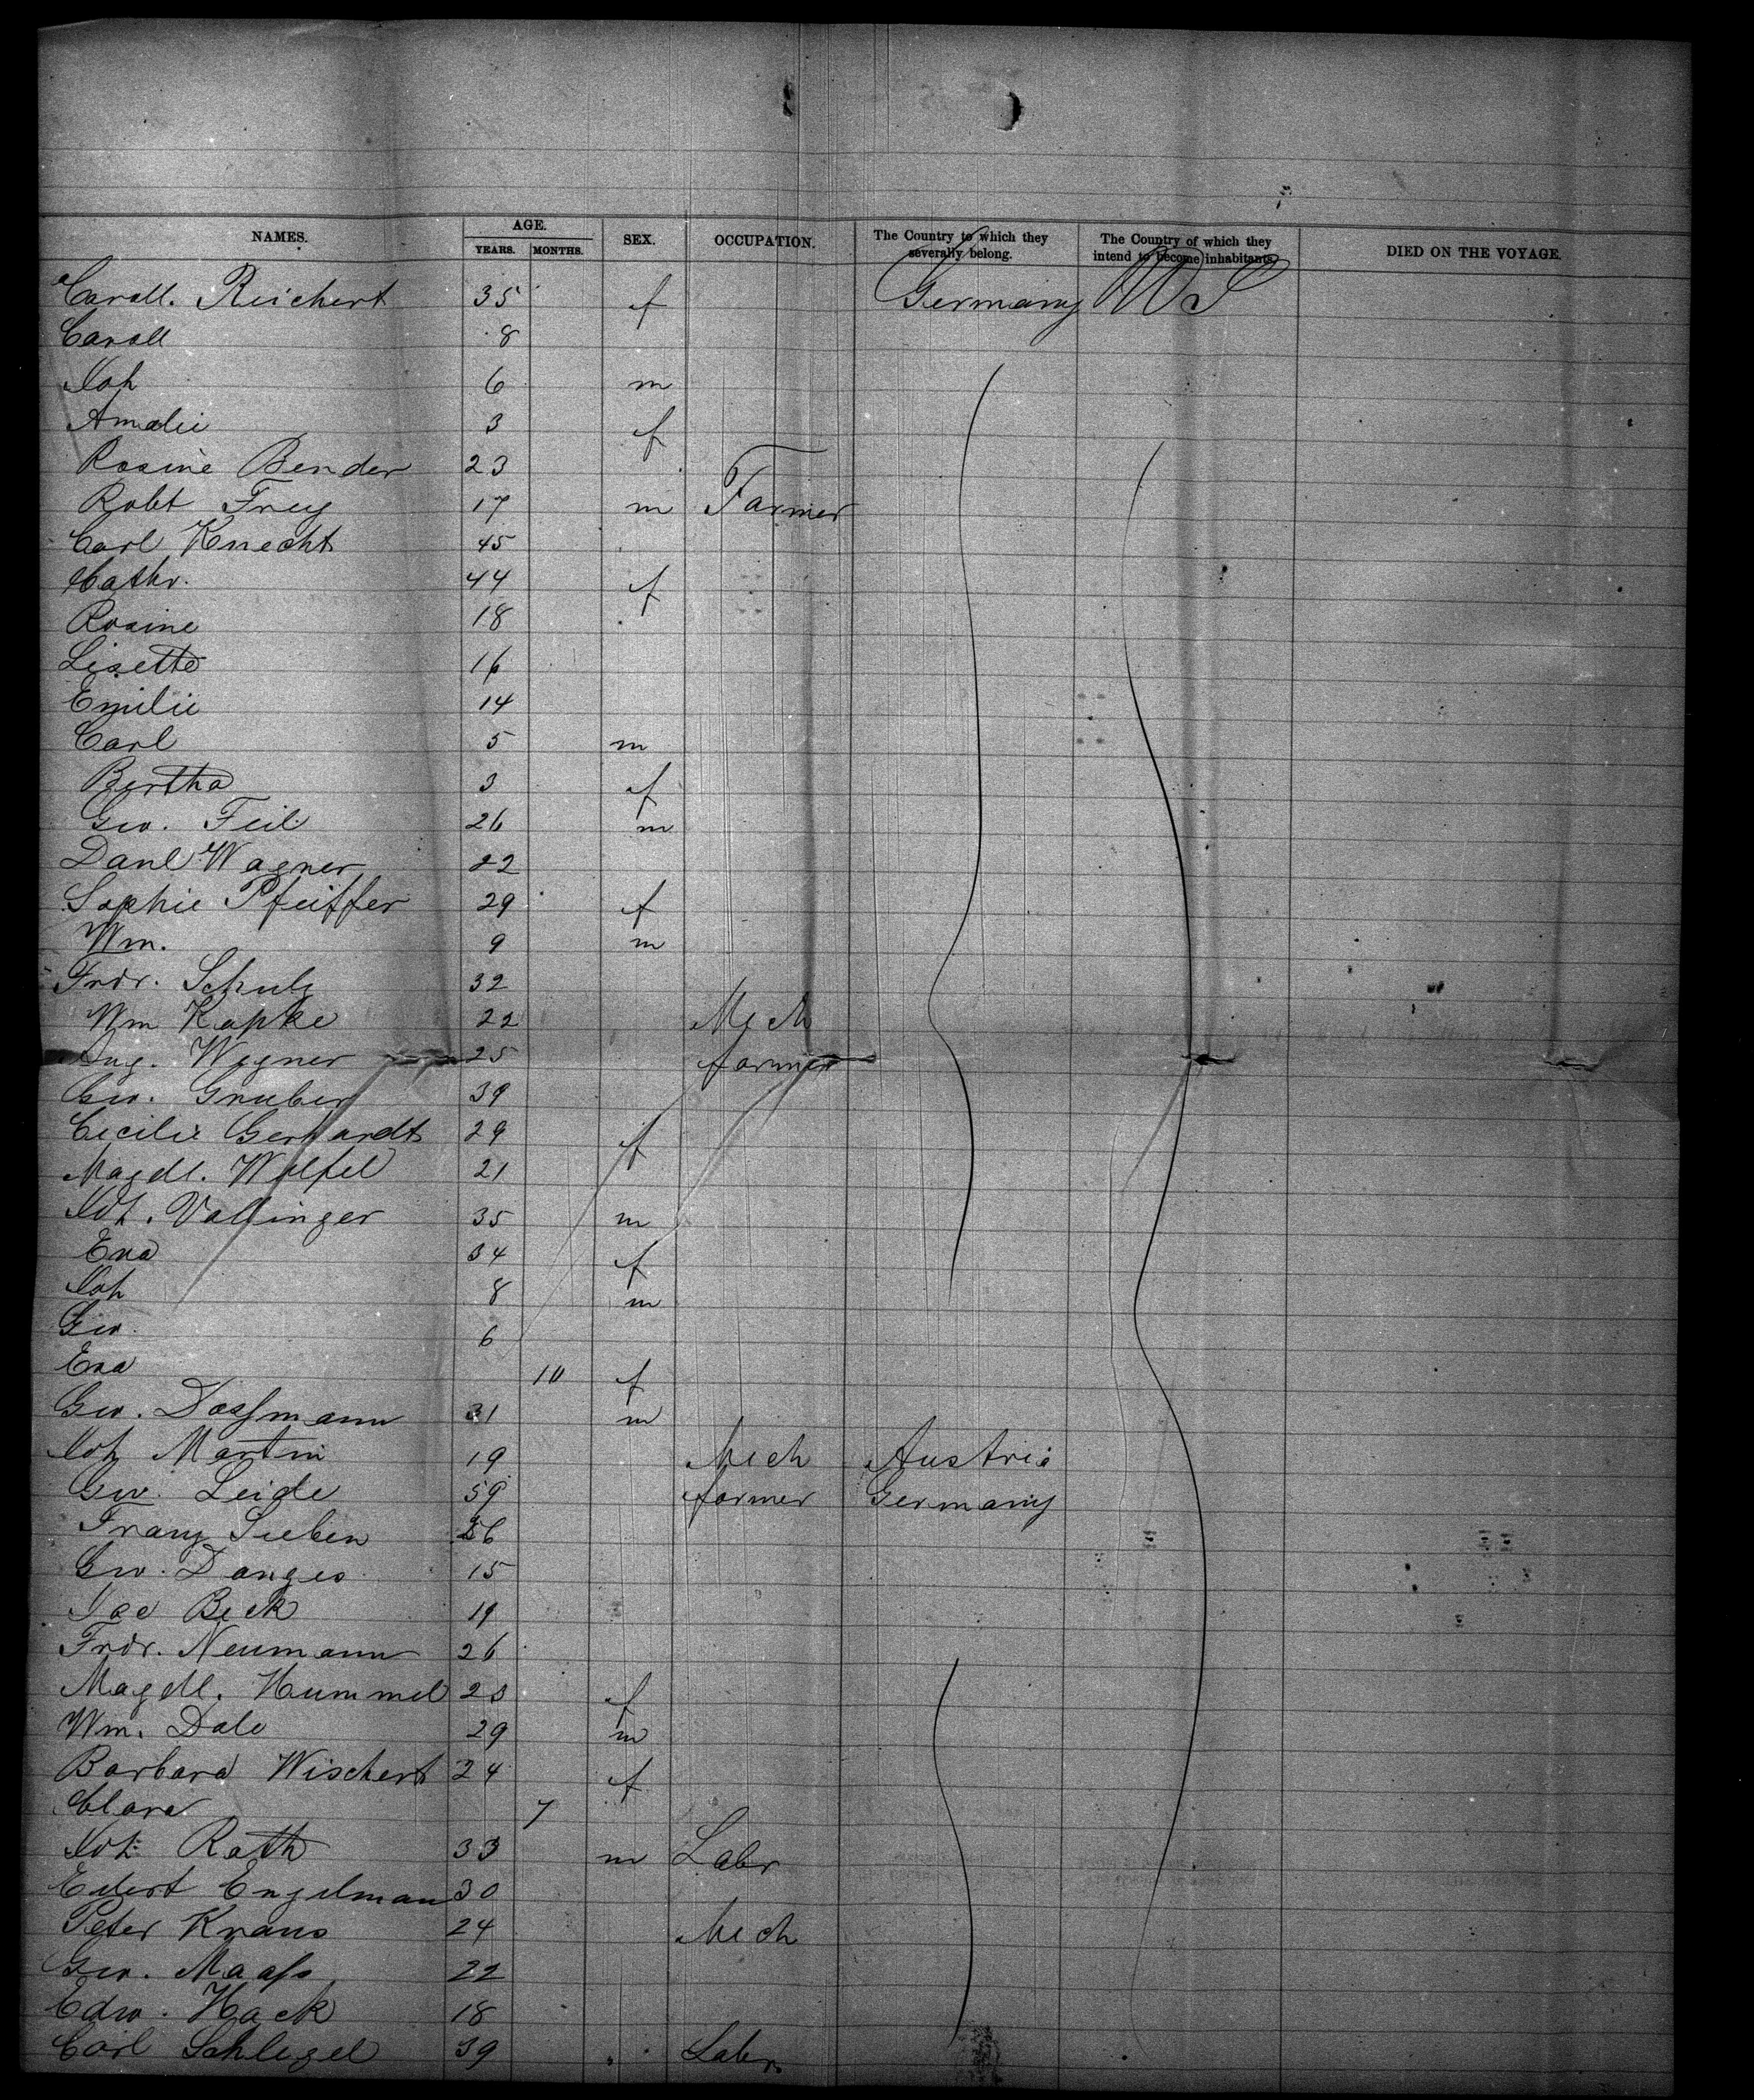 NAMES. AGE. YEARS. MONTHS. SEX. OCCUPATION. The Country to which they severally belong. The Country of which they intend to become inhabitants. DIED ON THE VOYAGE.
Caroll. Reichert 35 f Germany US
Caroll 8
Joh 6 m
Amalie 3 f
Rosine Bender 23
Robt Frey 17 m Farmer
Carl Knecht 45
Cathr. 44 f
Rosine 18
Lisette 16
Emilie 14
Carl 5 m
Bertha 3 f
Geo. Feil 26 m
Danl Wagner 22
Sophie Pfeiffer 29 f
Wm. 9 m
Frdr. Schulz 32
Wm Kapke 22 Mech
Aug. Wegner 25 farmer
Geo. Gruber 39
Cecilie Gerhardt 29 f
Magdl. Wolfel 21
Joh. Vallinger 35 m
Eva 34 f
Joh 8 m
Geo. 6
Eva 10 f
Geo. Dossmann 31 m
Joh Martin 19 Mech Austria
Geo. Leide 59 farmer Germany
Franz Sieben 26
Geo. Danges 15
Jac Beck 19
Frdr. Neumann 26
Magdl. Hummel 23 f
Wm. Dale 29 m
Barbara Wischert 24 f
Clara 7
Joh. Rath 33 m Labr
Engelman 30
Peter Kraus 24 Mech
Geo. Maass 22
Edw. Hack 18
Carl Schlegel 39 Labr